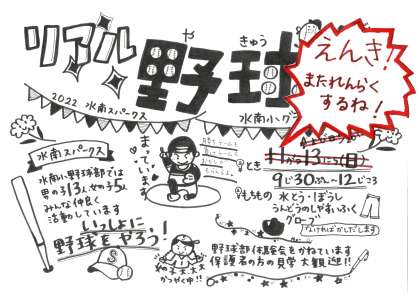 リアル野球
や
きゅう
えんき!
またれんらく
するね!
2022 水南スパークス
水南小グ
水南スパークス
水南小野球部では
男の子13人女の子5人
みんな仲良く
活動しています
いっしょに
野球をやろう!
まっています
とき
11がつ13にち(日)
9じ30ぷん〜12じごろ
もちもの 水とう・ぼうし
うんどうのしやすいふく
グローブ
なければかしだします
女の子も大
かつやく中!!
野球部体験会をかねています
保護者の方の見学大歓迎!!